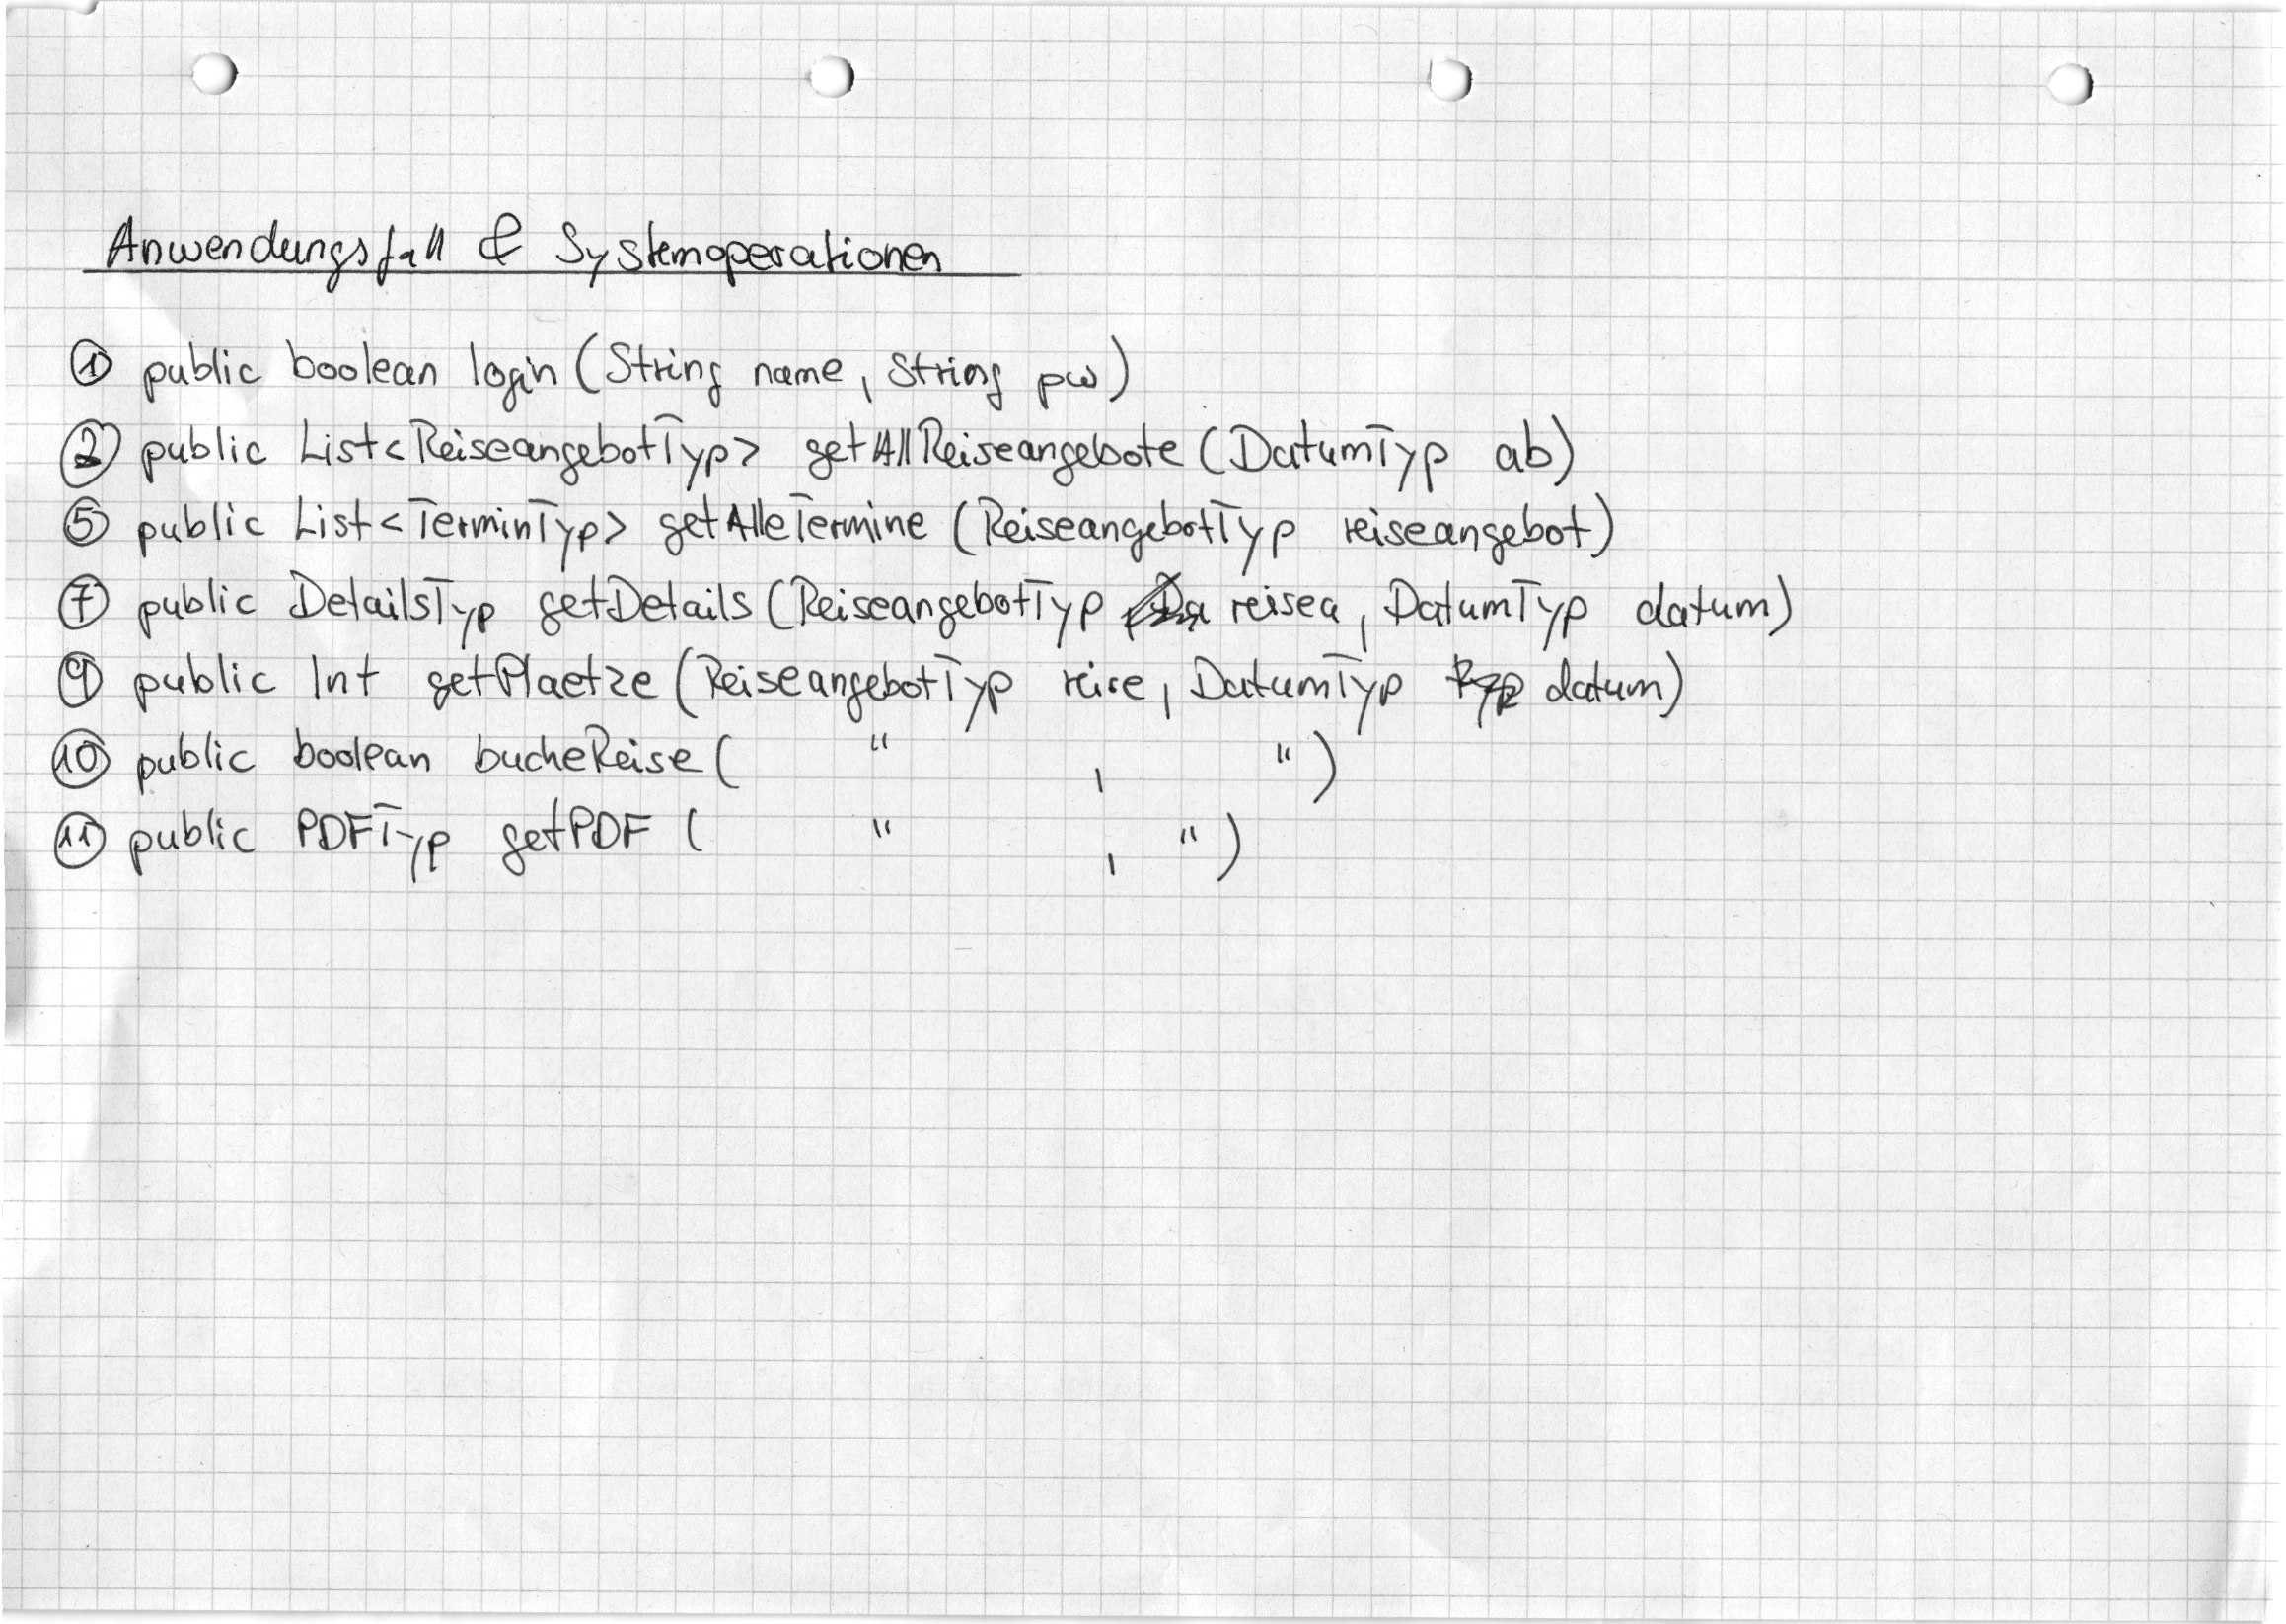 Anwendungsfall & Systemoperationen
① public boolean login (String name, String pw)
② public List<ReiseangebotTyp> getAllReiseangebote (DatumTyp ab)
⑤ public List<TerminTyp> getAlleTermine (ReiseangebotTyp reiseangebot)
⑦ public DetailsTyp getDetails (ReiseangebotTyp reisea, DatumTyp datum)
⑨ public Int getPlaetze (ReiseangebotTyp reise, DatumTyp datum)
⑩ public boolean bucheReise ( " , " )
⑪ public PDFTyp getPDF ( " , " )